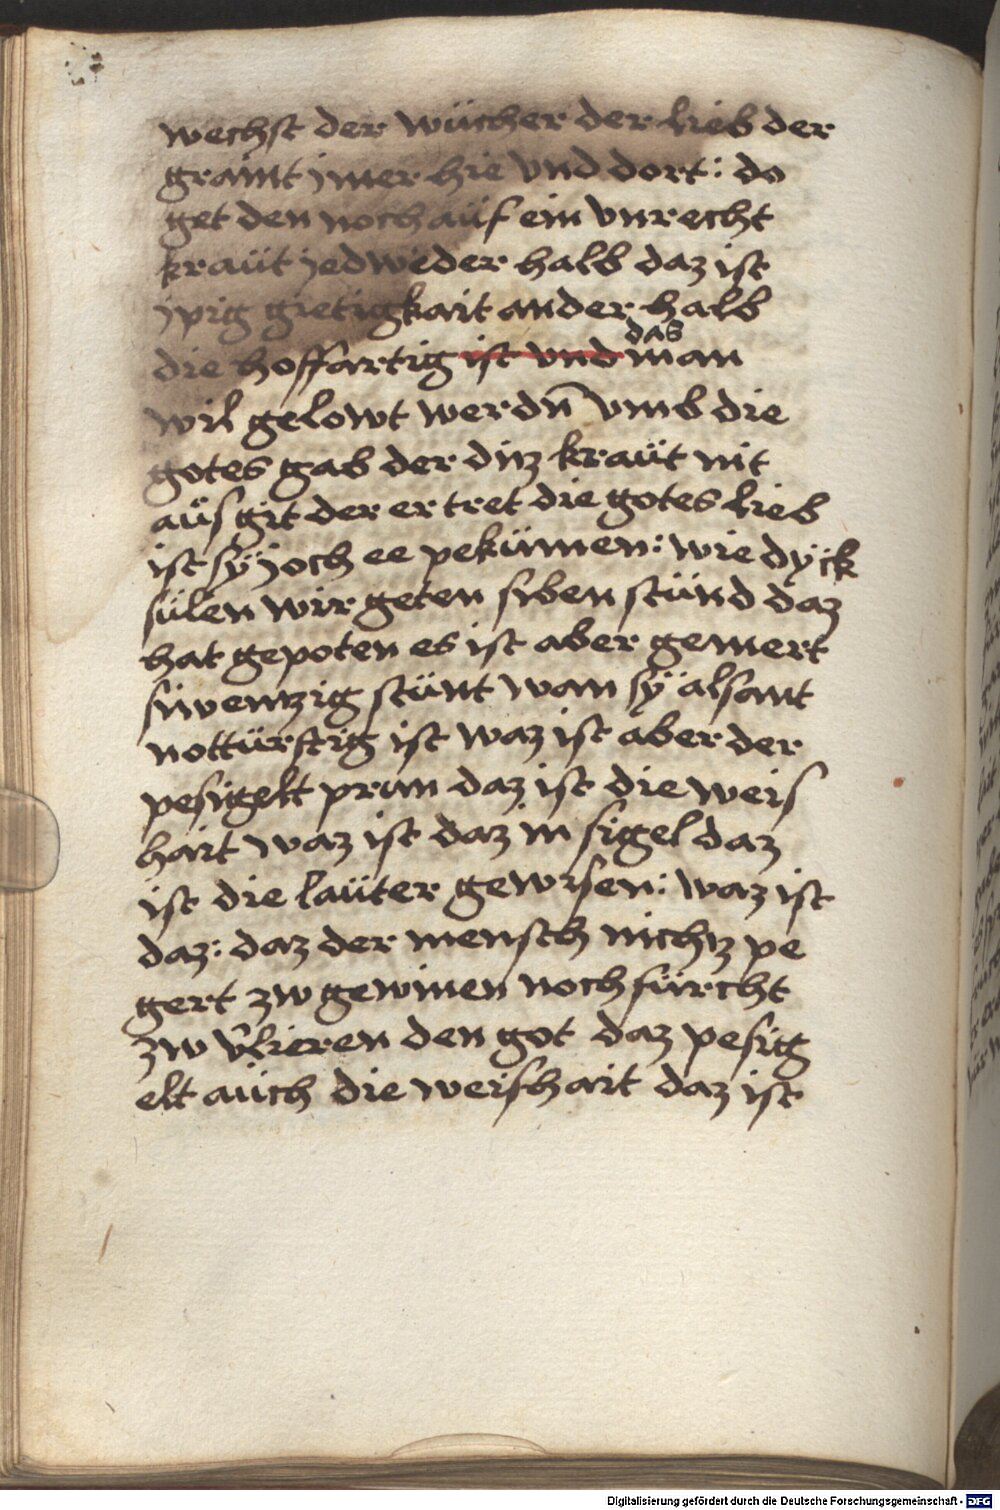 wechst der wücher der lieb der
graint jmer hie vnd dort: do
get den noch auf ein vnrecht
kraüt jedweder halb daz ist
jpig gietigkait ander halb
die hoffartig ist vnd das man
wil gelowt werdn̄ vmb die
gotes gab der diz kraüt nit
aüs git der er tret die gotes lieb
ist sÿ joch ee pekümen: wie dÿck
sülen wir geten siben stünd daz
hat gepoten es ist aber gemert
siwentzig stünt wan sÿ alsamt
nottürftig ist waz ist aber der
pesigelt prun daz ist die weis
hait waz ist daz in sigel daz
ist die laüter gewisen: waz ist
daz: daz der mensch nichtz pe
gert zw gewinen noch fürcht
zw v̓lieren den got daz pesig
elt aüch die weishait daz ist
Digitalisierung gefördert durch die Deutsche Forschungsgemeinschaft - DFG